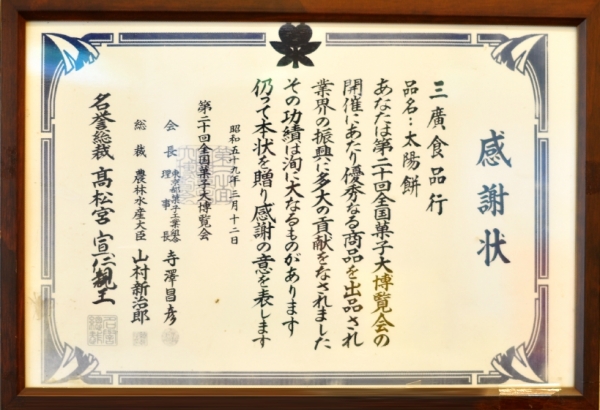 感謝状
三廣食品行
品名：太陽餅
あなたは第二十回全国菓子大博覧会の
開催にあたり優秀なる商品を出品され
業界の振興に多大の貢献をなされました
その功績は洵に大なるものがあります
仍つて本状を贈り感謝の意を表します
昭和五十九年二月十二日
第二十回全国菓子大博覧会
会長 東京都菓子工業組合理事長 寺澤昌彦
総裁 農林水産大臣 山村新治郎
名誉総裁 高松宮宣仁親王